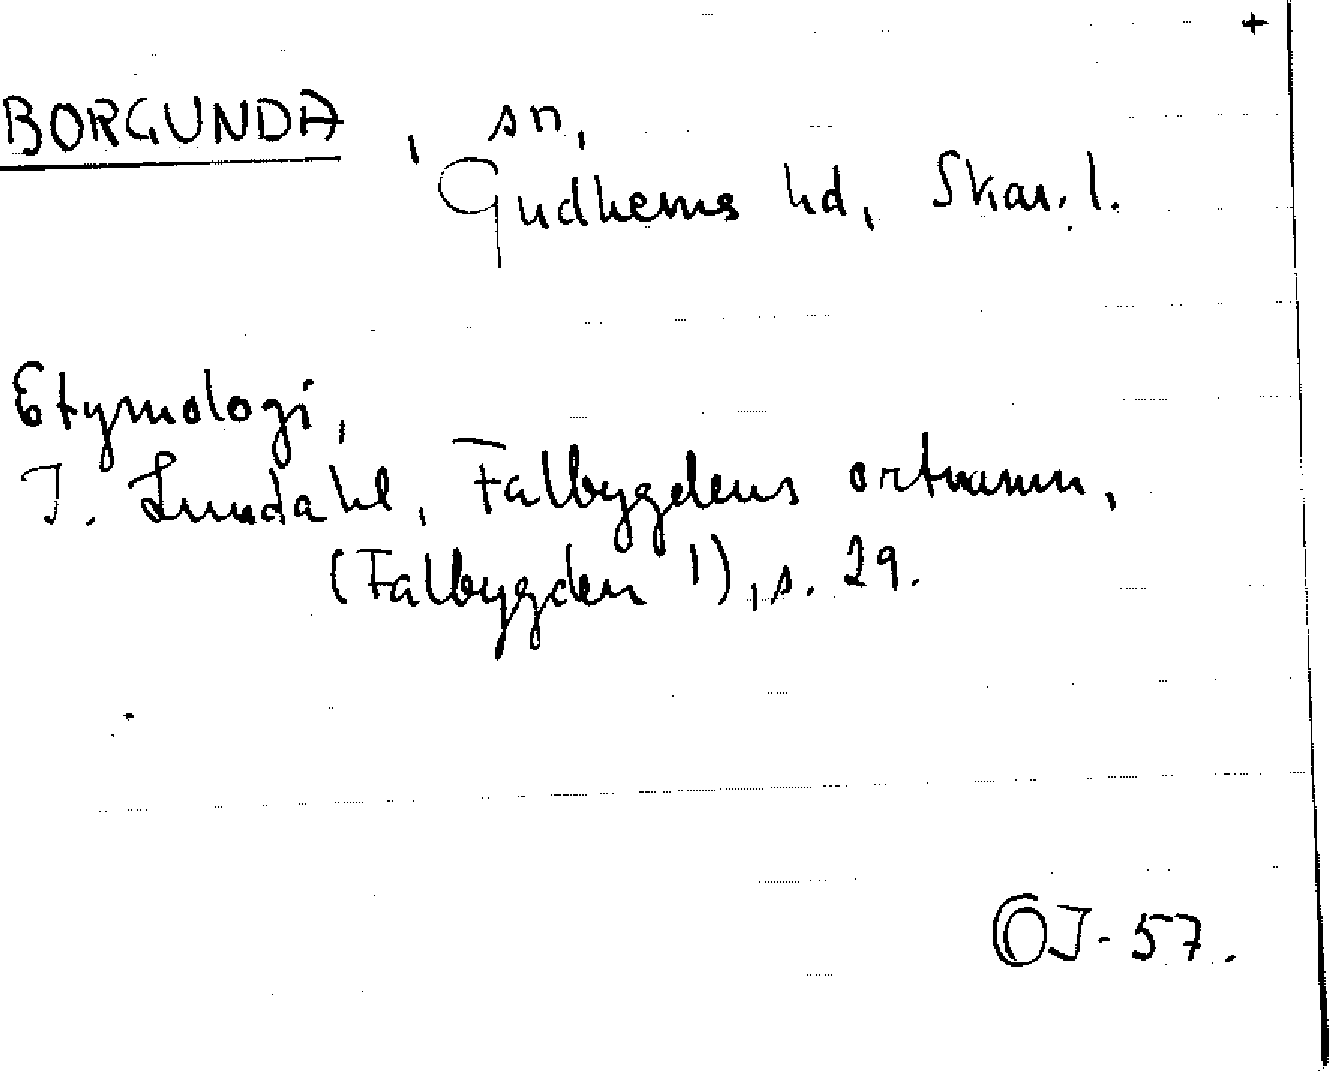 +
BORGUNDA, sn,
Gudhems hd, Skar. l.
Etymologi,
I. Lundahl, Falbygdens ortnamn,
(Falbygden 1), s. 29.
OJ-57.